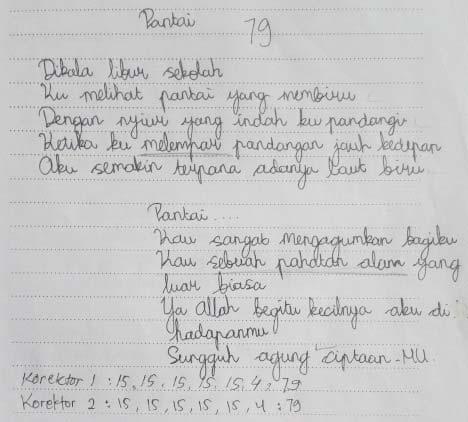 Pantai
79
Dikala libur sekolah
Ku melihat pantai yang membiru
Dengan nyiur yang indah ku pandangi
Ketika ku melempar pandangan jauh kedepan
Aku semakin terpana adanya laut biru
Pantai....
Kau sangat mengagumkan bagiku
Kau sebuah pahatan alam yang
luar biasa
Ya Allah begitu kecilnya aku di
hadapanmu
Sungguh agung ciptaan-MU.
Korektor 1 : 15, 15, 15, 15, 15, 4 : 79
Korektor 2 : 15, 15, 15, 15, 15, 4 : 79